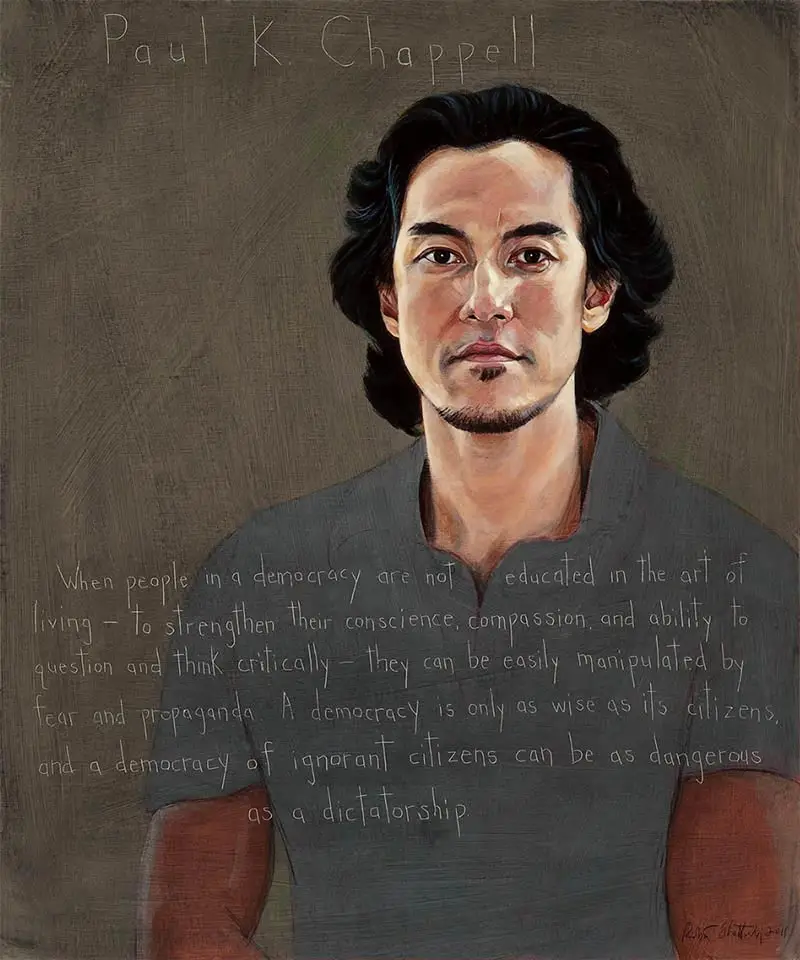 Paul K. Chappell
When people in a democracy are not educated in the art of
living – to strengthen their conscience, compassion, and ability to
question and think critically – they can be easily manipulated by
fear and propaganda A democracy is only as wise as its citizens,
and a democracy of ignorant citizens can be as dangerous
as a dictatorship
2011